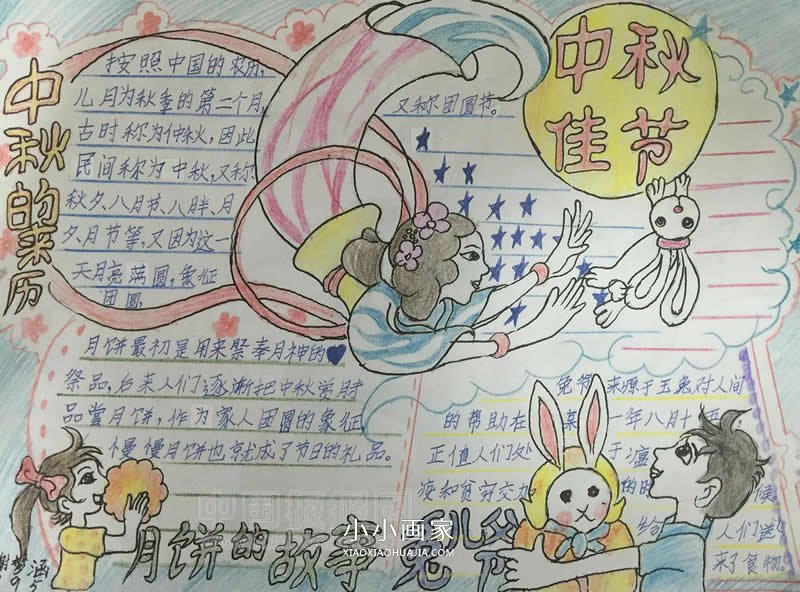 中秋的来历
按照中国的农历，
八月为秋季的第二个月，
古时称为仲秋，因此
民间称为中秋，又称
秋夕、八月节、八月半、月
夕、月节等，又因为这一
天月亮满圆，象征
团圆
又称团圆节。
中秋
佳节
月饼最初是用来祭奉月神的
祭品，后来人们逐渐把中秋赏月
品尝月饼，作为家人团圆的象征
慢慢月饼也就成了节日的礼品。
月饼的故事
兔 来源于玉兔对人间
的帮助在某 一年八月十
正值人们处 于瘟
疫和贫穷交加 的时 候
给 人们送
来了食物。
兔儿爷 节
小小画家
XIAOXIAOHUAJIA.COM
涵